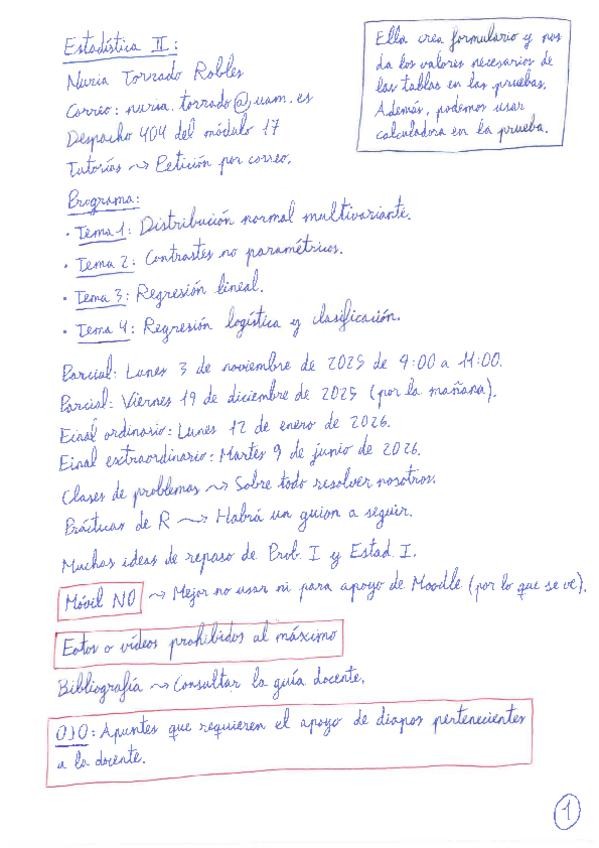 Estadística II:
Nuria Torrado Robles
Correo: nuria.torrado@uam.es
Despacho 404 del módulo 17
Tutorías ⇝ Petición por correo.
Ella crea formulario y nos
da los valores necesarios de
las tablas en las pruebas.
Además, podemos usar
calculadora en la prueba.
Programa:
· Tema 1: Distribución normal multivariante.
· Tema 2: Contrastes no paramétricos.
· Tema 3: Regresión lineal.
· Tema 4: Regresión logística y clasificación.
Parcial: Lunes 3 de noviembre de 2025 de 9:00 a 11:00.
Parcial: Viernes 19 de diciembre de 2025 (por la mañana).
Final ordinario: Lunes 12 de enero de 2026.
Final extraordinario: Martes 9 de junio de 2026.
Clases de problemas ⇝ Sobre todo resolver nosotros.
Prácticas de R ⇝ Habrá un guion a seguir.
Muchas ideas de repaso de Prob. I y Estad. I.
Móvil NO ⇝ Mejor no usar ni para apoyo de Moodle (por lo que se ve).
Fotos o vídeos prohibidos al máximo
Bibliografía ⇝ Consultar la guía docente.
OJO: Apuntes que requieren el apoyo de diapos pertenecientes
a la docente.
1